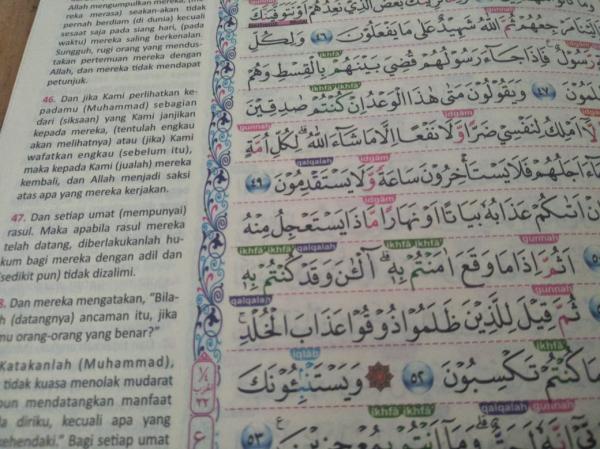 Allah mengumpulkan mereka, (me-
reka merasa) seakan-akan tidak
pernah berdiam (di dunia) kecuali
sesaat saja pada siang hari, (pada
waktu) mereka saling berkenalan.
Sungguh, rugi orang yang mendus-
takan pertemuan mereka dengan
Allah, dan mereka tidak mendapat
petunjuk.
46. Dan jika Kami perlihatkan ke-
padamu (Muhammad) sebagian
dari (siksaan) yang Kami janjikan
kepada mereka, (tentulah engkau
akan melihatnya) atau (jika) Kami
wafatkan engkau (sebelum itu),
maka kepada Kami (jualah) mereka
kembali, dan Allah menjadi saksi
atas apa yang mereka kerjakan.
47. Dan setiap umat (mempunyai)
rasul. Maka apabila rasul mereka
telah datang, diberlakukanlah hu-
kum bagi mereka dengan adil dan
(sedikit pun) tidak dizalimi.
Dan mereka mengatakan, "Bila-
(datangnya) ancaman itu, jika
orang-orang yang benar?"
Katakanlah (Muhammad),
tidak kuasa menolak mudarat
mendatangkan manfaat
diriku, kecuali apa yang
Bagi setiap umat
مرجعهم ثم الله شهيد على ما يفعلون ٤٦ ولكل
رسول فاذا جاء رسولهم قضي بينهم بالقسط وهم
٤٧ ويقولون متى هذا الوعد ان كنتم صدقين
املك لنفسي ضرا ولا نفعا الا ما شاء الله لكل امة
اجلهم فلا يستأخرون ساعة ولا يستقدمون ٤٩
ان اتىكم عذابه بياتا او نهارا ماذا يستعجل منه
اثم اذا ما وقع امنتم به آلٰن وقد كنتم به
ثم قيل للذين ظلموا ذوقوا عذاب الخلد
كنتم تكسبون ٥٢ ويستنبئونك
٥٣ وما انتم بمعجزين